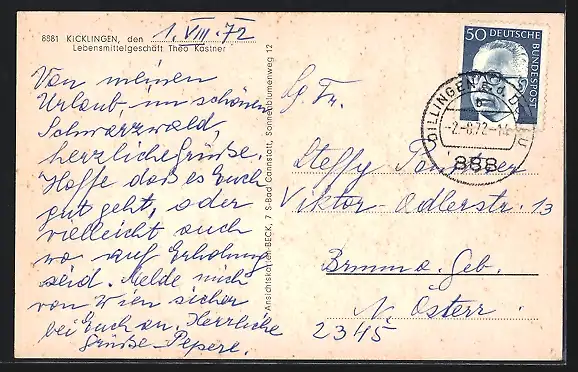 8881 KICKLINGEN, den 1. VIII. 72
Lebensmittelgeschäft Theo Kastner
Von meinen
Urlaub, im schönen
Schwarzwald,
herzliche Grüße.
Hoffe daß es Euch
gut geht, oder
vielleicht auch
wo auf Erholung
seid. Melde mich
von Wien sicher
bei Euch an. Herrliche
Grüße Pepere.
Ansichtskarten-BECK, 7 S-Bad Cannstatt, Sonnenblumenweg 12
50 DEUTSCHE
BUNDESPOST
DILLINGEN A D DONAU
b
-2.-8.72-1
888
Lg. Fr.
Steffy
Viktor-Adlerstr. 13
Brunn a. Geb.
N. Österr.
2345